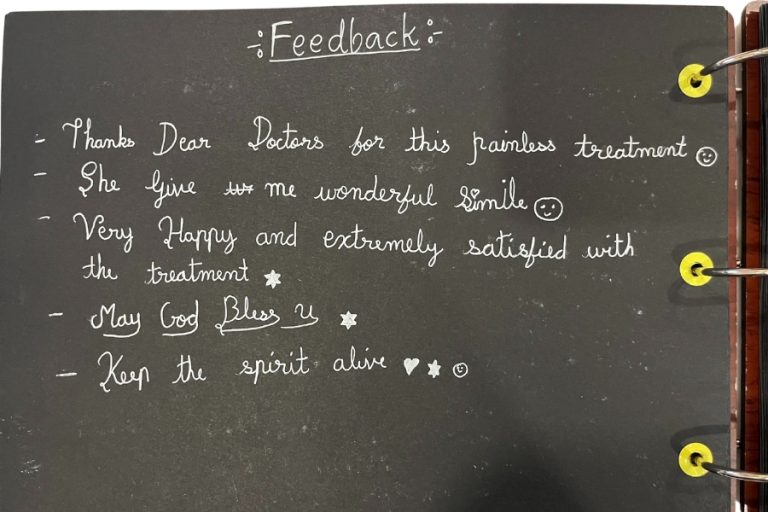 -: Feedback :-
- Thanks Dear Doctors for this painless treatment ☺
- She Give me wonderful Simile ☺
- Very Happy and extremely satisfied with
the treatment ★
- May God Bless U ★
- Keep the spirit alive ♥ ★ ☺